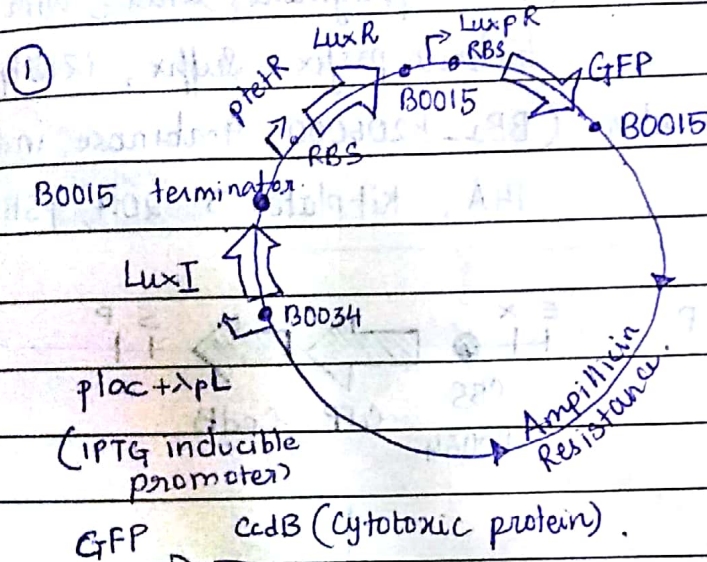 ①
LuxR
LuxpR
ptetR
RBS
GFP
B0015
B0015
RBS
B0015 terminator
LuxI
B0034
plac + λpL
(IPTG inducible
promoter)
Ampillicin
Resistance
GFP CcdB (Cytotoxic protein).